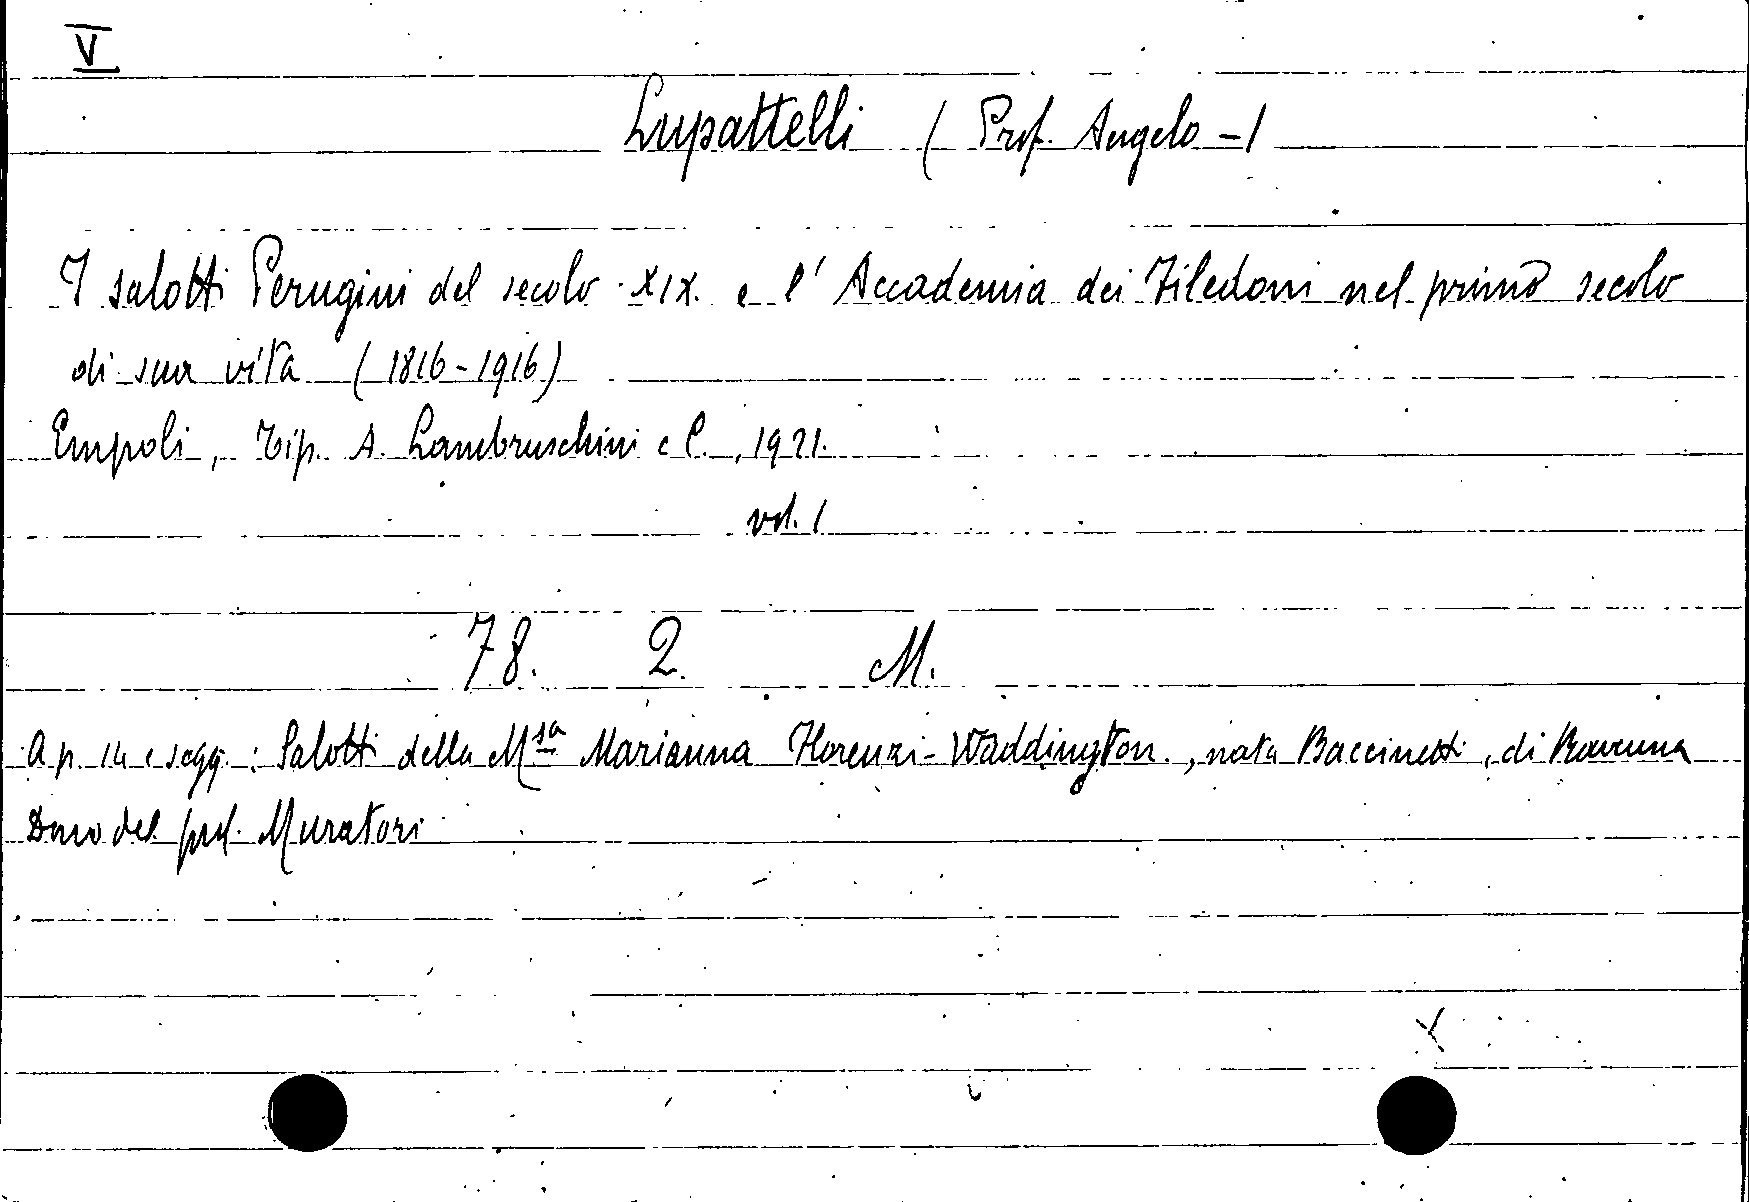 V
Lupattelli (Prof. Angelo -)
I salotti Perugini del secolo XIX. e l' Accademia dei Filedoni nel primo secolo
di sua vita (1816-1916)
Empoli, Tip. A. Lambruschini e C., 1921.
vol. 1
78. 2. M.
A p. 14 e segg.: Salotti della Msa Marianna Florenzi-Waddington, nata Baccinetti, di Ravenna
Dono del prof. Muratori